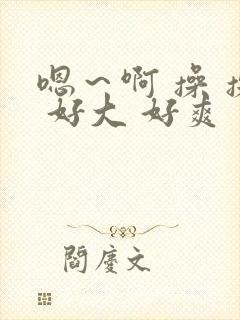 嗯~啊 操
好大 好爽
閻慶文